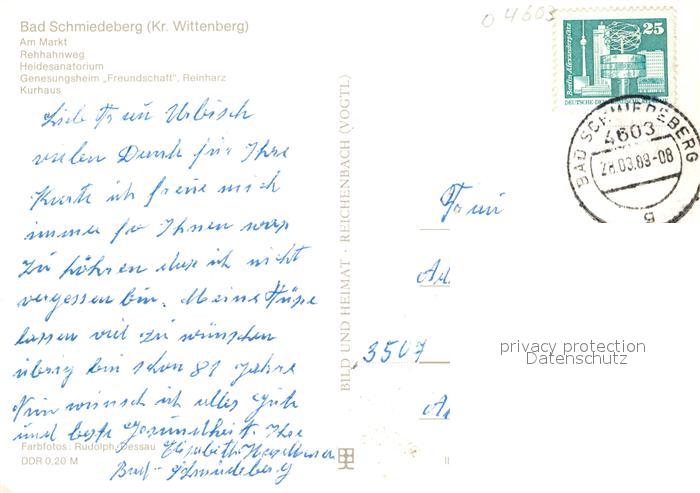 Bad Schmiedeberg (Kr. Wittenberg)
Am Markt
Rehhahnweg
Heidesanatorium
Genesungsheim „Freundschaft", Reinharz
Kurhaus
Liebe Frau Urbisch
vielen Dank für Ihre
Karte ich freue mich
immer fo Ihnen was
zu höhren das ich nicht
vergessen bin. Meine Füße
lassen viel zu wünschen
übrig bin schon 81 Jahre
Nun wünsch ich alles Gute
und beste Gesundheit. Ihre
Elisabeth
Bad-Schmiedeberg
Farbfotos: Rudolph, Dessau
DDR 0,20 M
BILD UND HEIMAT · REICHENBACH (VOGTL)
04603
25
Berlin, Alexanderplatz
DEUTSCHE DE
BAD SCHMIEDEBERG
4603
28.03.89-08
Frau
3507
privacy protection
Datenschutz